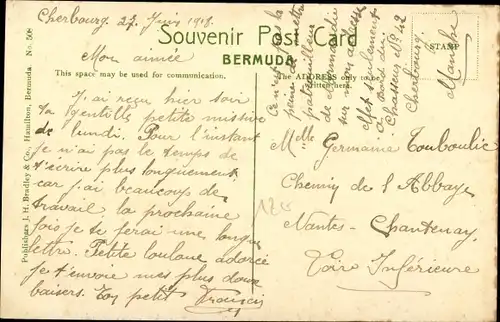 Cherbourg. 27 Juin 1918.
Souvenir Post Card
BERMUDA
Mon aimée
This space may be used for communication.
J'ai reçu hier soir
ta gentille petite missive
de lundi. Pour l'instant
je n'ai pas le temps de
t'écrire plus longuement
car j'ai beaucoup de
travail la prochaine
fois je te ferai une longue
lettre. Petite loulone adorée
je t'envoie mes plus doux
baisers. Ton petit Francis
Publishers J. H. Bradley & Co., Hamilton, Bermuda. No. 506
The ADDRESS only to be
written here.
STAMP
Ce n'est pas la
peine de mettre
patrouilleur
de Normandie
sur mon adresse
mets seulement
à bord du
Chasseur No 42
Cherbourg
Manche
Melle Germaine Touboulic
Chemin de l'Abbaye
Nantes-Chantenay
Loire Inférieure